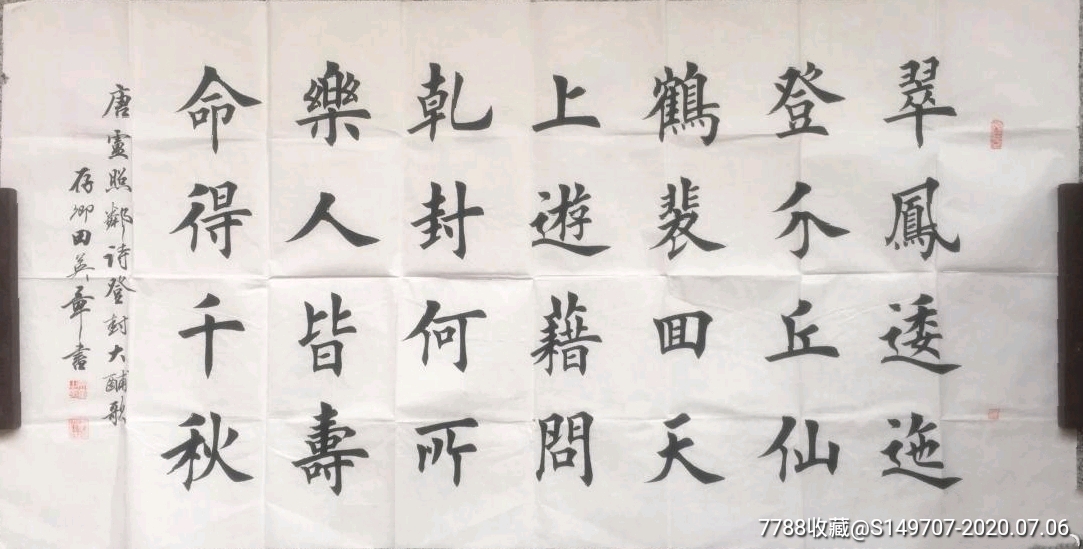 翠鳳逶迤
登介丘仙
鶴裵囬天
上遊藉問
乾封何所
樂人皆壽
命得千秋
唐盧照鄰詩登封大酺歌
存卿田英章書
7788收藏@S149707-2020.07.06